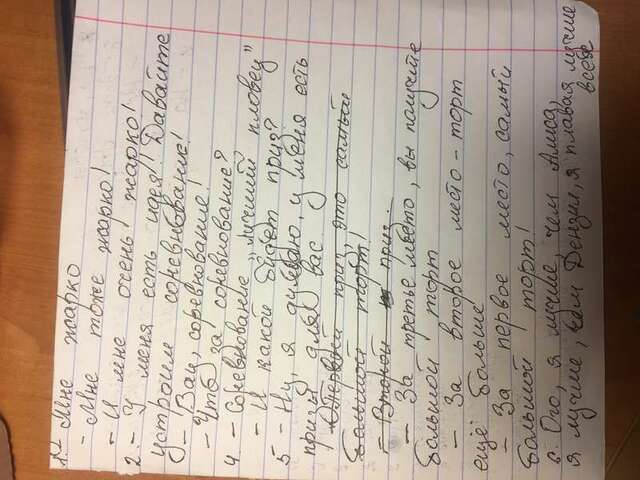 1. - Мне жарко
- Мне тоже жарко!
- И мне очень жарко!
2. - У меня есть идея! Давайте
устроим соревнование!
- Вац, соревнование!
- Что за соревнование?
4 - Соревнование „лучший пловец”
- И какой будет приз?
5 - Ну, я думаю, у меня есть
призы для вас.
Первый приз, это самый
большой торт!
- Второй приз.
- За третье место, вы получите
большой торт
- За второе место - торт
ещё больше
- За первое место, самый
большой торт!
6. Ого, я лучше, чем Алиса,
я лучше, чем Дензил, я плаваю лучше
всех